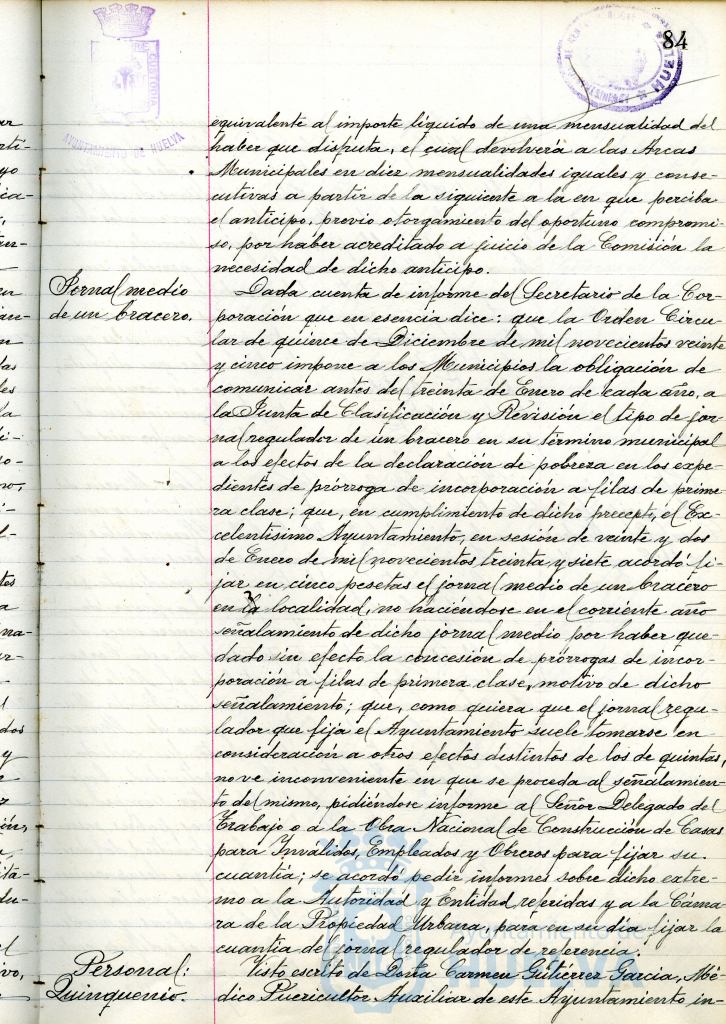 84
AYUNTAMIENTO DE HUELVA
equivalente al importe líquido de una mensualidad del
haber que disfruta, el cual devolverá a las Arcas
Municipales en diez mensualidades iguales y conse-
cutivas a partir de la siguiente a la en que perciba
el anticipo, previo otorgamiento del oportuno compromi-
so, por haber acreditado a juicio de la Comisión la
necesidad de dicho anticipo.
Jornal medio
de un bracero.
Dada cuenta de informe del Secretario de la Cor-
poración que en esencia dice: que la Orden Circu-
lar de quince de Diciembre de mil novecientos veinte
y cinco impone a los Municipios la obligación de
comunicar antes del treinta de Enero de cada año, a
la Junta de Clasificación y Revisión el tipo de jor-
nal regulador de un bracero en su término municipal
a los efectos de la declaración de pobreza en los expe-
dientes de prórroga de incorporación a filas de prime-
ra clase; que, en cumplimiento de dicho precepto, el Ex-
celentísimo Ayuntamiento, en sesión de veinte y dos
de Enero de mil novecientos treinta y siete acordó fi-
jar en cinco pesetas el jornal medio de un bracero
en la localidad, no haciéndose en el corriente año
señalamiento de dicho jornal medio por haber que-
dado sin efecto la concesión de prórrogas de incor-
poración a filas de primera clase, motivo de dicho
señalamiento; que, como quiera que el jornal regu-
lador que fija el Ayuntamiento suele tomarse en
consideración a otros efectos distintos de los de quintas,
no ve inconveniente en que se proceda al señalamien-
to del mismo, pidiéndose informe al Señor Delegado del
Trabajo o a la Obra Nacional de Construcción de Casas
para Inválidos, Empleados y Obreros para fijar su
cuantía; se acordó pedir informes sobre dicho extre-
mo a la Autoridad y Entidad referidas y a la Cáma-
ra de la Propiedad Urbana, para en su día fijar la
cuantía del jornal regulador de referencia.
Personal:
Quinquenio.
Visto escrito de Doña Carmen Gutiérrez García, Mé-
dico Puericultor Auxiliar de este Ayuntamiento in-
Ayuntamiento de
HUELVA